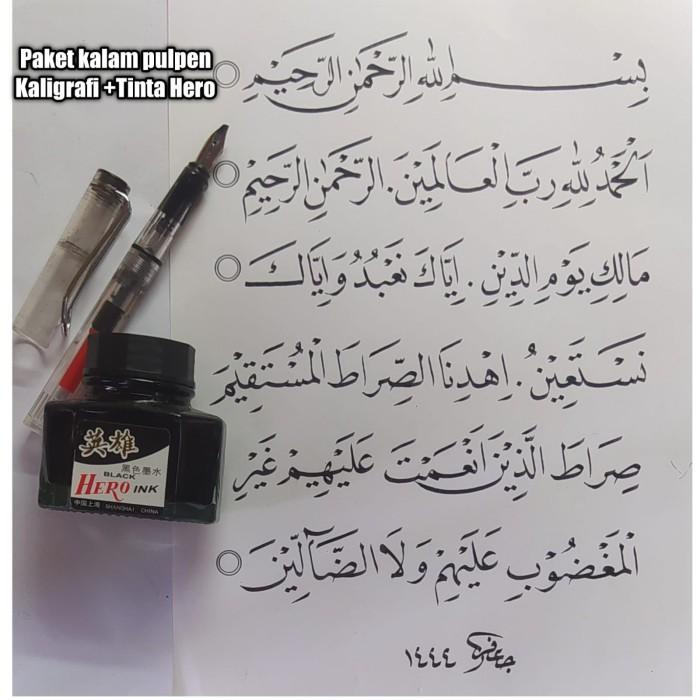 Paket kalam pulpen
Kaligrafi +Tinta Hero
بِسْمِ اللهِ الرَّحْمٰنِ الرَّحِيْمِ
اَلْحَمْدُ لِلّٰهِ رَبِّ الْعَالَمِيْنَ. الرَّحْمٰنِ الرَّحِيْمِ
مَالِكِ يَوْمِ الدِّيْنِ. اِيَّاكَ نَعْبُدُ وَاِيَّاكَ
نَسْتَعِيْنُ. اِهْدِنَا الصِّرَاطَ الْمُسْتَقِيْمَ
صِرَاطَ الَّذِيْنَ اَنْعَمْتَ عَلَيْهِمْ غَيْرِ
الْمَغْضُوْبِ عَلَيْهِمْ وَلَا الضَّآلِّيْنَ
١٤٤٤
英雄
黑色墨水
BLACK
HERO INK
中国上海 SHANGHAI CHINA